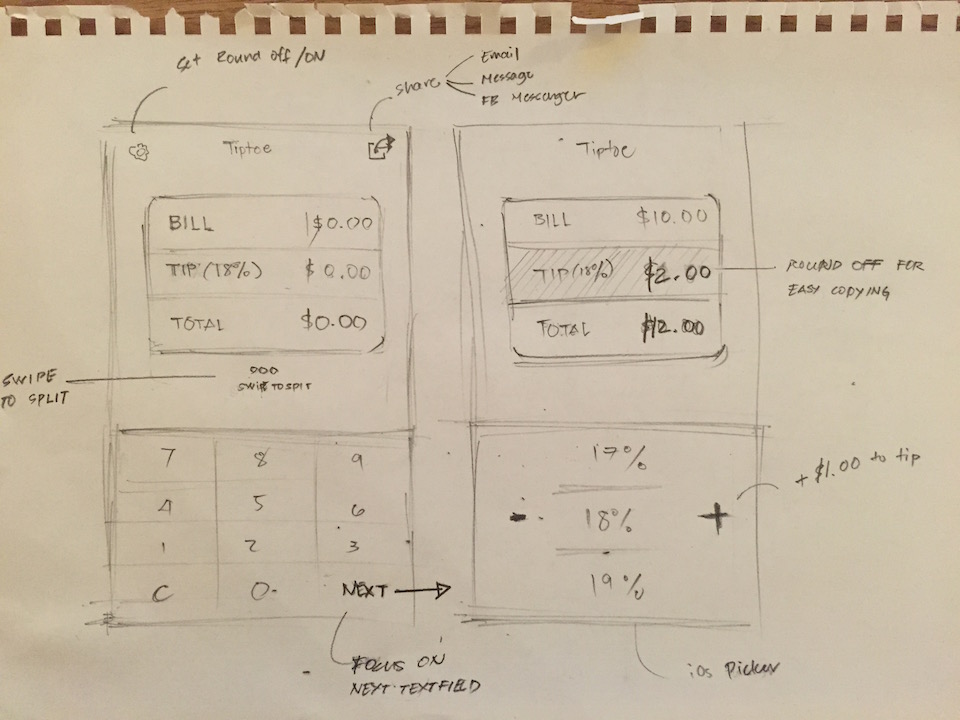 Set Round off/ON
share
Email
Message
FB Messenger
Tiptoe
BILL $0.00
TIP (18%) $0.00
TOTAL $0.00
SWIPE TO SPLIT
SWIPE
TO SPLIT
7 8 9
4 5 6
1 2 3
C 0 NEXT
FOCUS ON
NEXT TEXTFIELD
Tiptoe
BILL $10.00
TIP (18%) $2.00
TOTAL $12.00
ROUND OFF FOR
EASY COPYING
17%
- 18% +
19%
+ $1.00 to tip
iOS Picker